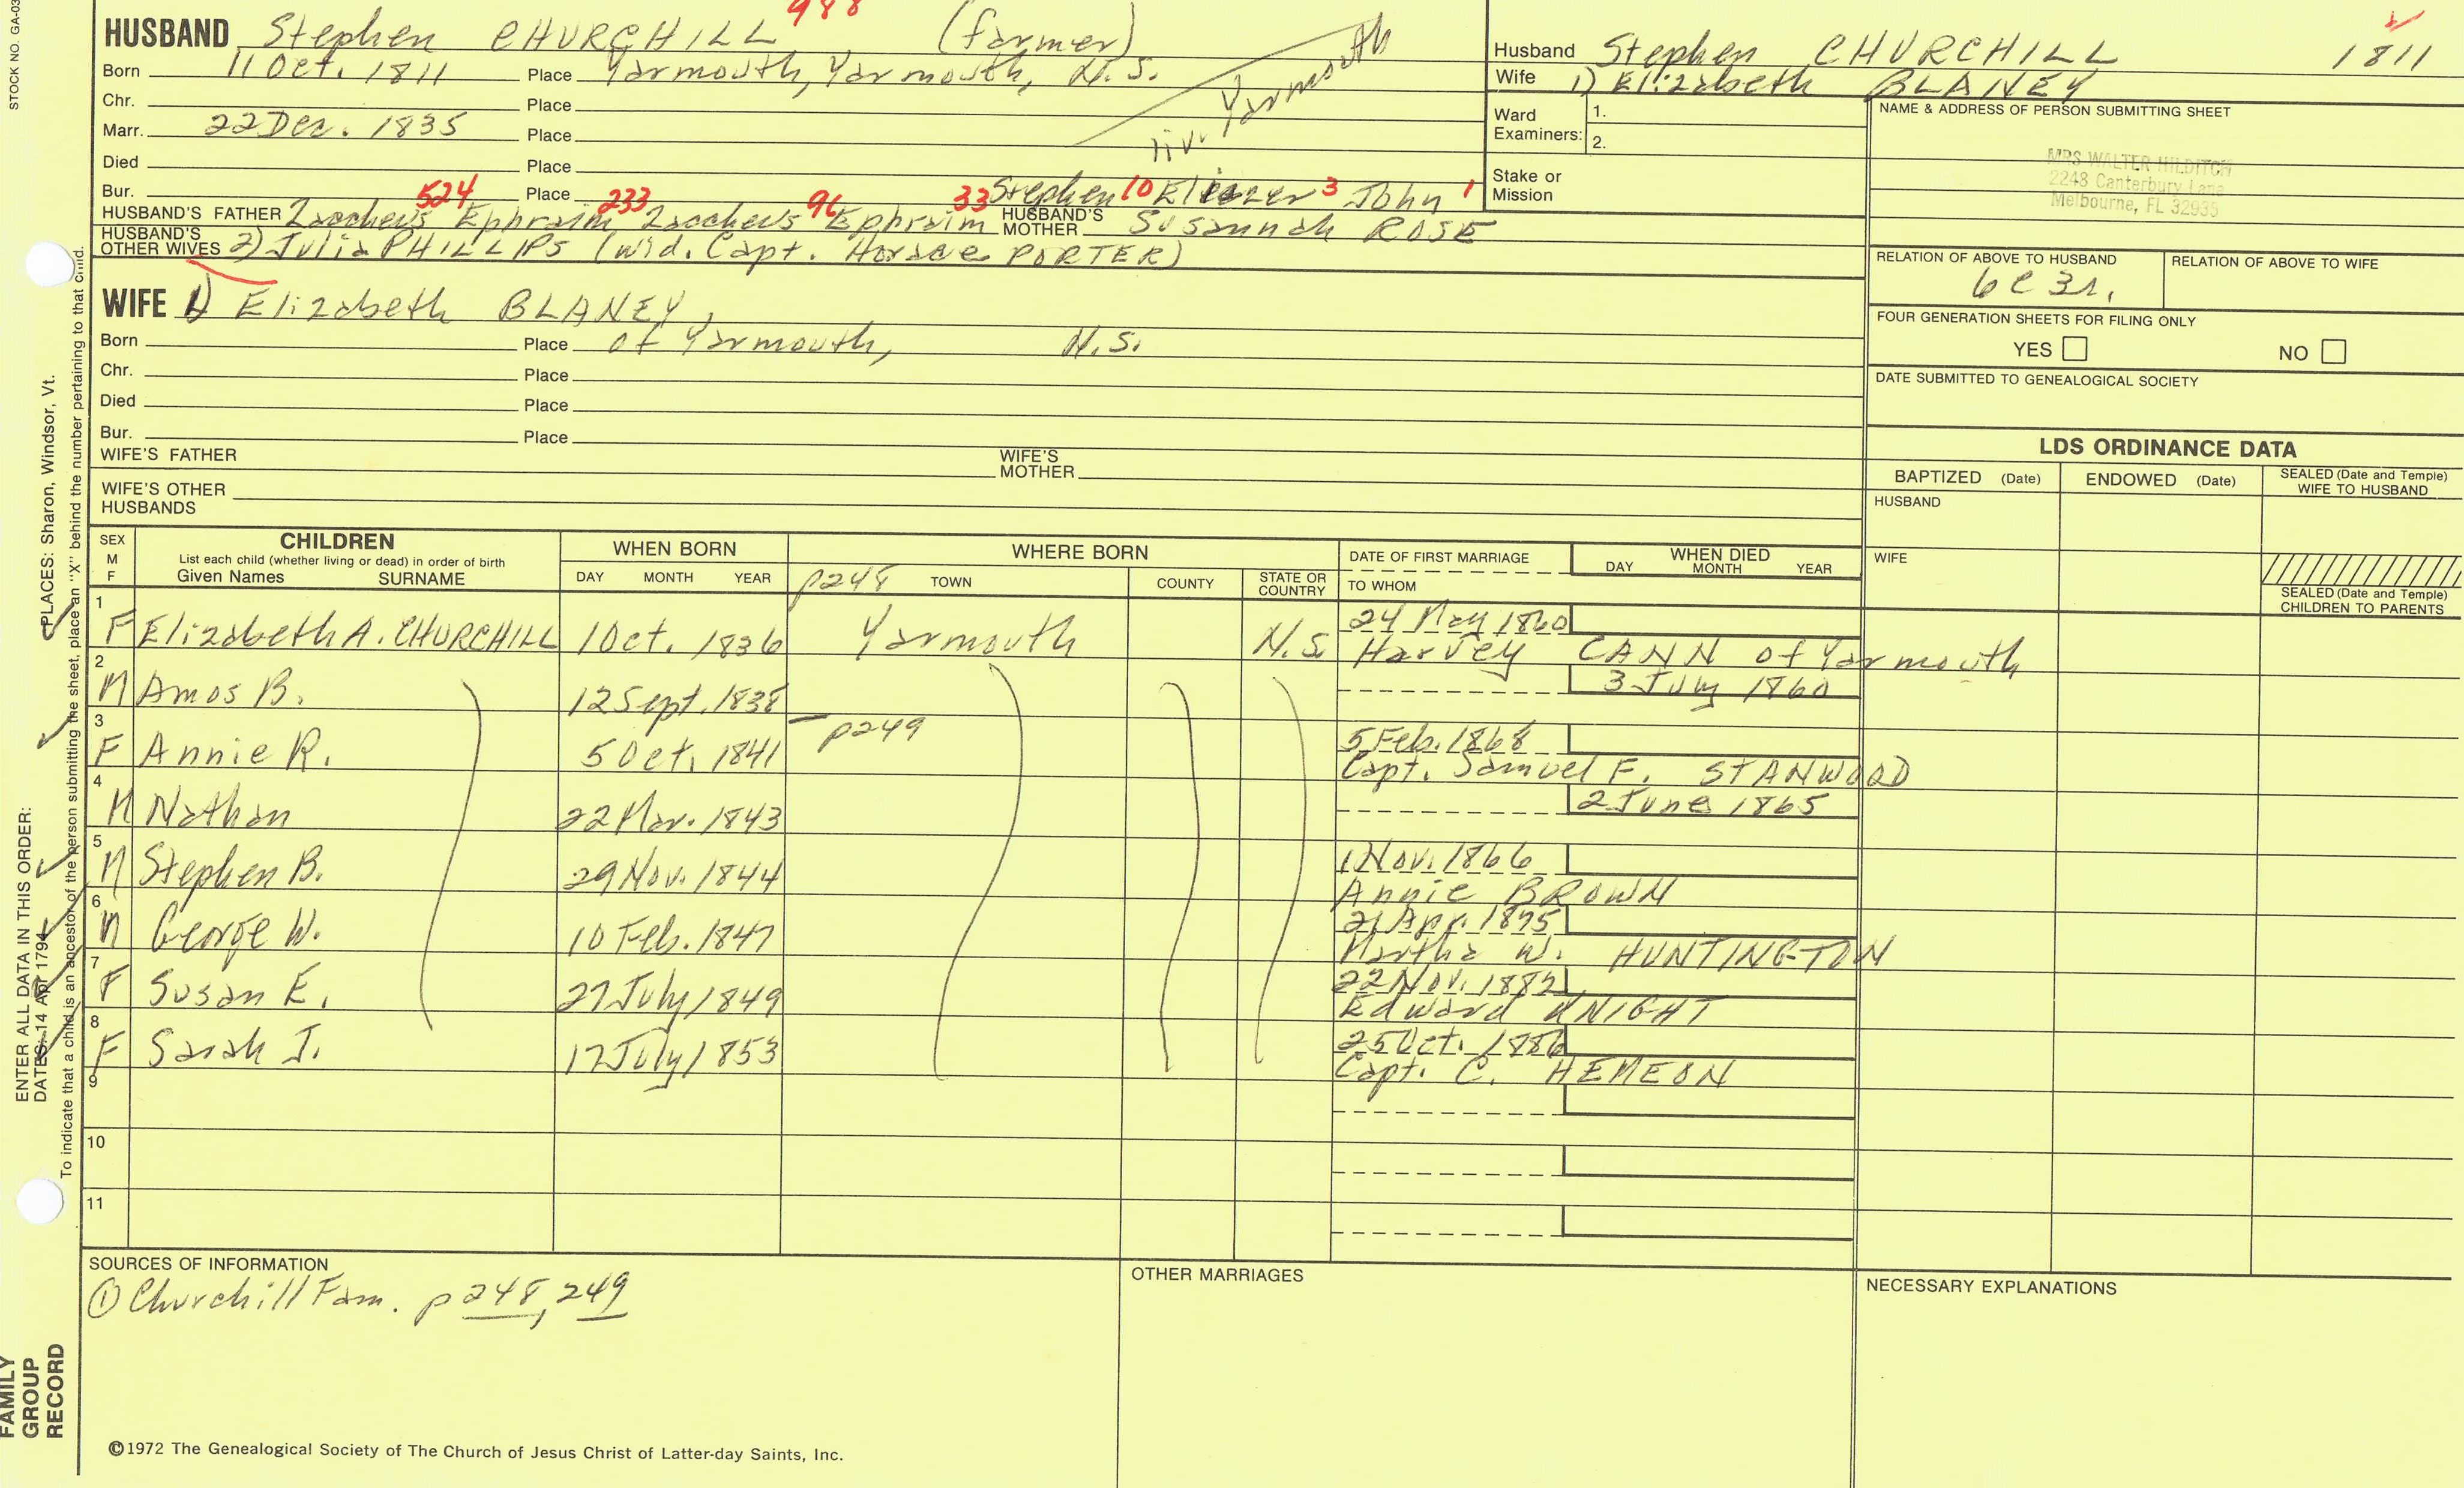 STOCK NO. GA-03
988
HUSBAND Stephen CHURCHILL (farmer)
Born 11 Oct. 1811 Place Yarmouth, Yarmouth, N.S.
Chr. Place
liv. Yarmouth
Marr. 22 Dec. 1835 Place
Died Place
Bur. Place
524 233 96 33 Stephen 10 Eliezer 3 John 1
HUSBAND'S FATHER Zaccheus Ephraim Zaccheus Ephraim HUSBAND'S MOTHER Susannah ROSE
HUSBAND'S OTHER WIVES 2) Julia PHILLIPS (wid. Capt. Horace PORTER)
WIFE 1) Elizabeth BLANEY,
Born Place of Yarmouth, N.S.
Chr. Place
Died Place
Bur. Place
WIFE'S FATHER WIFE'S MOTHER
WIFE'S OTHER HUSBANDS
Husband Stephen CHURCHILL 1811
Wife 1) Elizabeth BLANEY
Ward Examiners: 1.
2.
Stake or Mission
NAME & ADDRESS OF PERSON SUBMITTING SHEET
MRS WALTER HILDITCH
2248 Canterbury Lane
Melbourne, FL 32935
RELATION OF ABOVE TO HUSBAND RELATION OF ABOVE TO WIFE
6C 3r.
FOUR GENERATION SHEETS FOR FILING ONLY
YES NO
DATE SUBMITTED TO GENEALOGICAL SOCIETY
LDS ORDINANCE DATA
BAPTIZED (Date) ENDOWED (Date) SEALED (Date and Temple) WIFE TO HUSBAND
HUSBAND
WIFE
SEALED (Date and Temple) CHILDREN TO PARENTS
SEX M F
CHILDREN
List each child (whether living or dead) in order of birth
Given Names SURNAME
WHEN BORN
DAY MONTH YEAR
WHERE BORN
p248 TOWN COUNTY STATE OR COUNTRY
DATE OF FIRST MARRIAGE
TO WHOM
WHEN DIED
DAY MONTH YEAR
1 F Elizabeth A. CHURCHILL 1 Oct. 1836 Yarmouth N.S. 24 May 1860
Harvey CANN of Yarmouth
2 M Amos B. 12 Sept. 1838 3 July 1860
p249
3 F Annie R. 5 Oct. 1841 5 Feb. 1868
Capt. Samuel F. STANWOOD
4 M Nathan 22 Mar. 1843 2 June 1865
5 M Stephen B. 29 Nov. 1844 1 Nov. 1866
Annie BROWN
6 M George W. 10 Feb. 1847 21 Apr. 1875
Martha W. HUNTINGTON
7 F Susan E. 27 July 1849 22 Nov. 1882
Edward KNIGHT
8 F Sarah J. 17 July 1853 25 Oct. 1886
Capt. C. HEMEON
9
10
11
SOURCES OF INFORMATION
① Churchill Fam. p248, 249
OTHER MARRIAGES
NECESSARY EXPLANATIONS
©1972 The Genealogical Society of The Church of Jesus Christ of Latter-day Saints, Inc.
FAMILY GROUP RECORD
ENTER ALL DATA IN THIS ORDER:
DATES: 14 Apr 1794
PLACES: Sharon, Windsor, Vt.
To indicate that a child is an ancestor of the person submitting the sheet, place an "X" behind the number pertaining to that child.